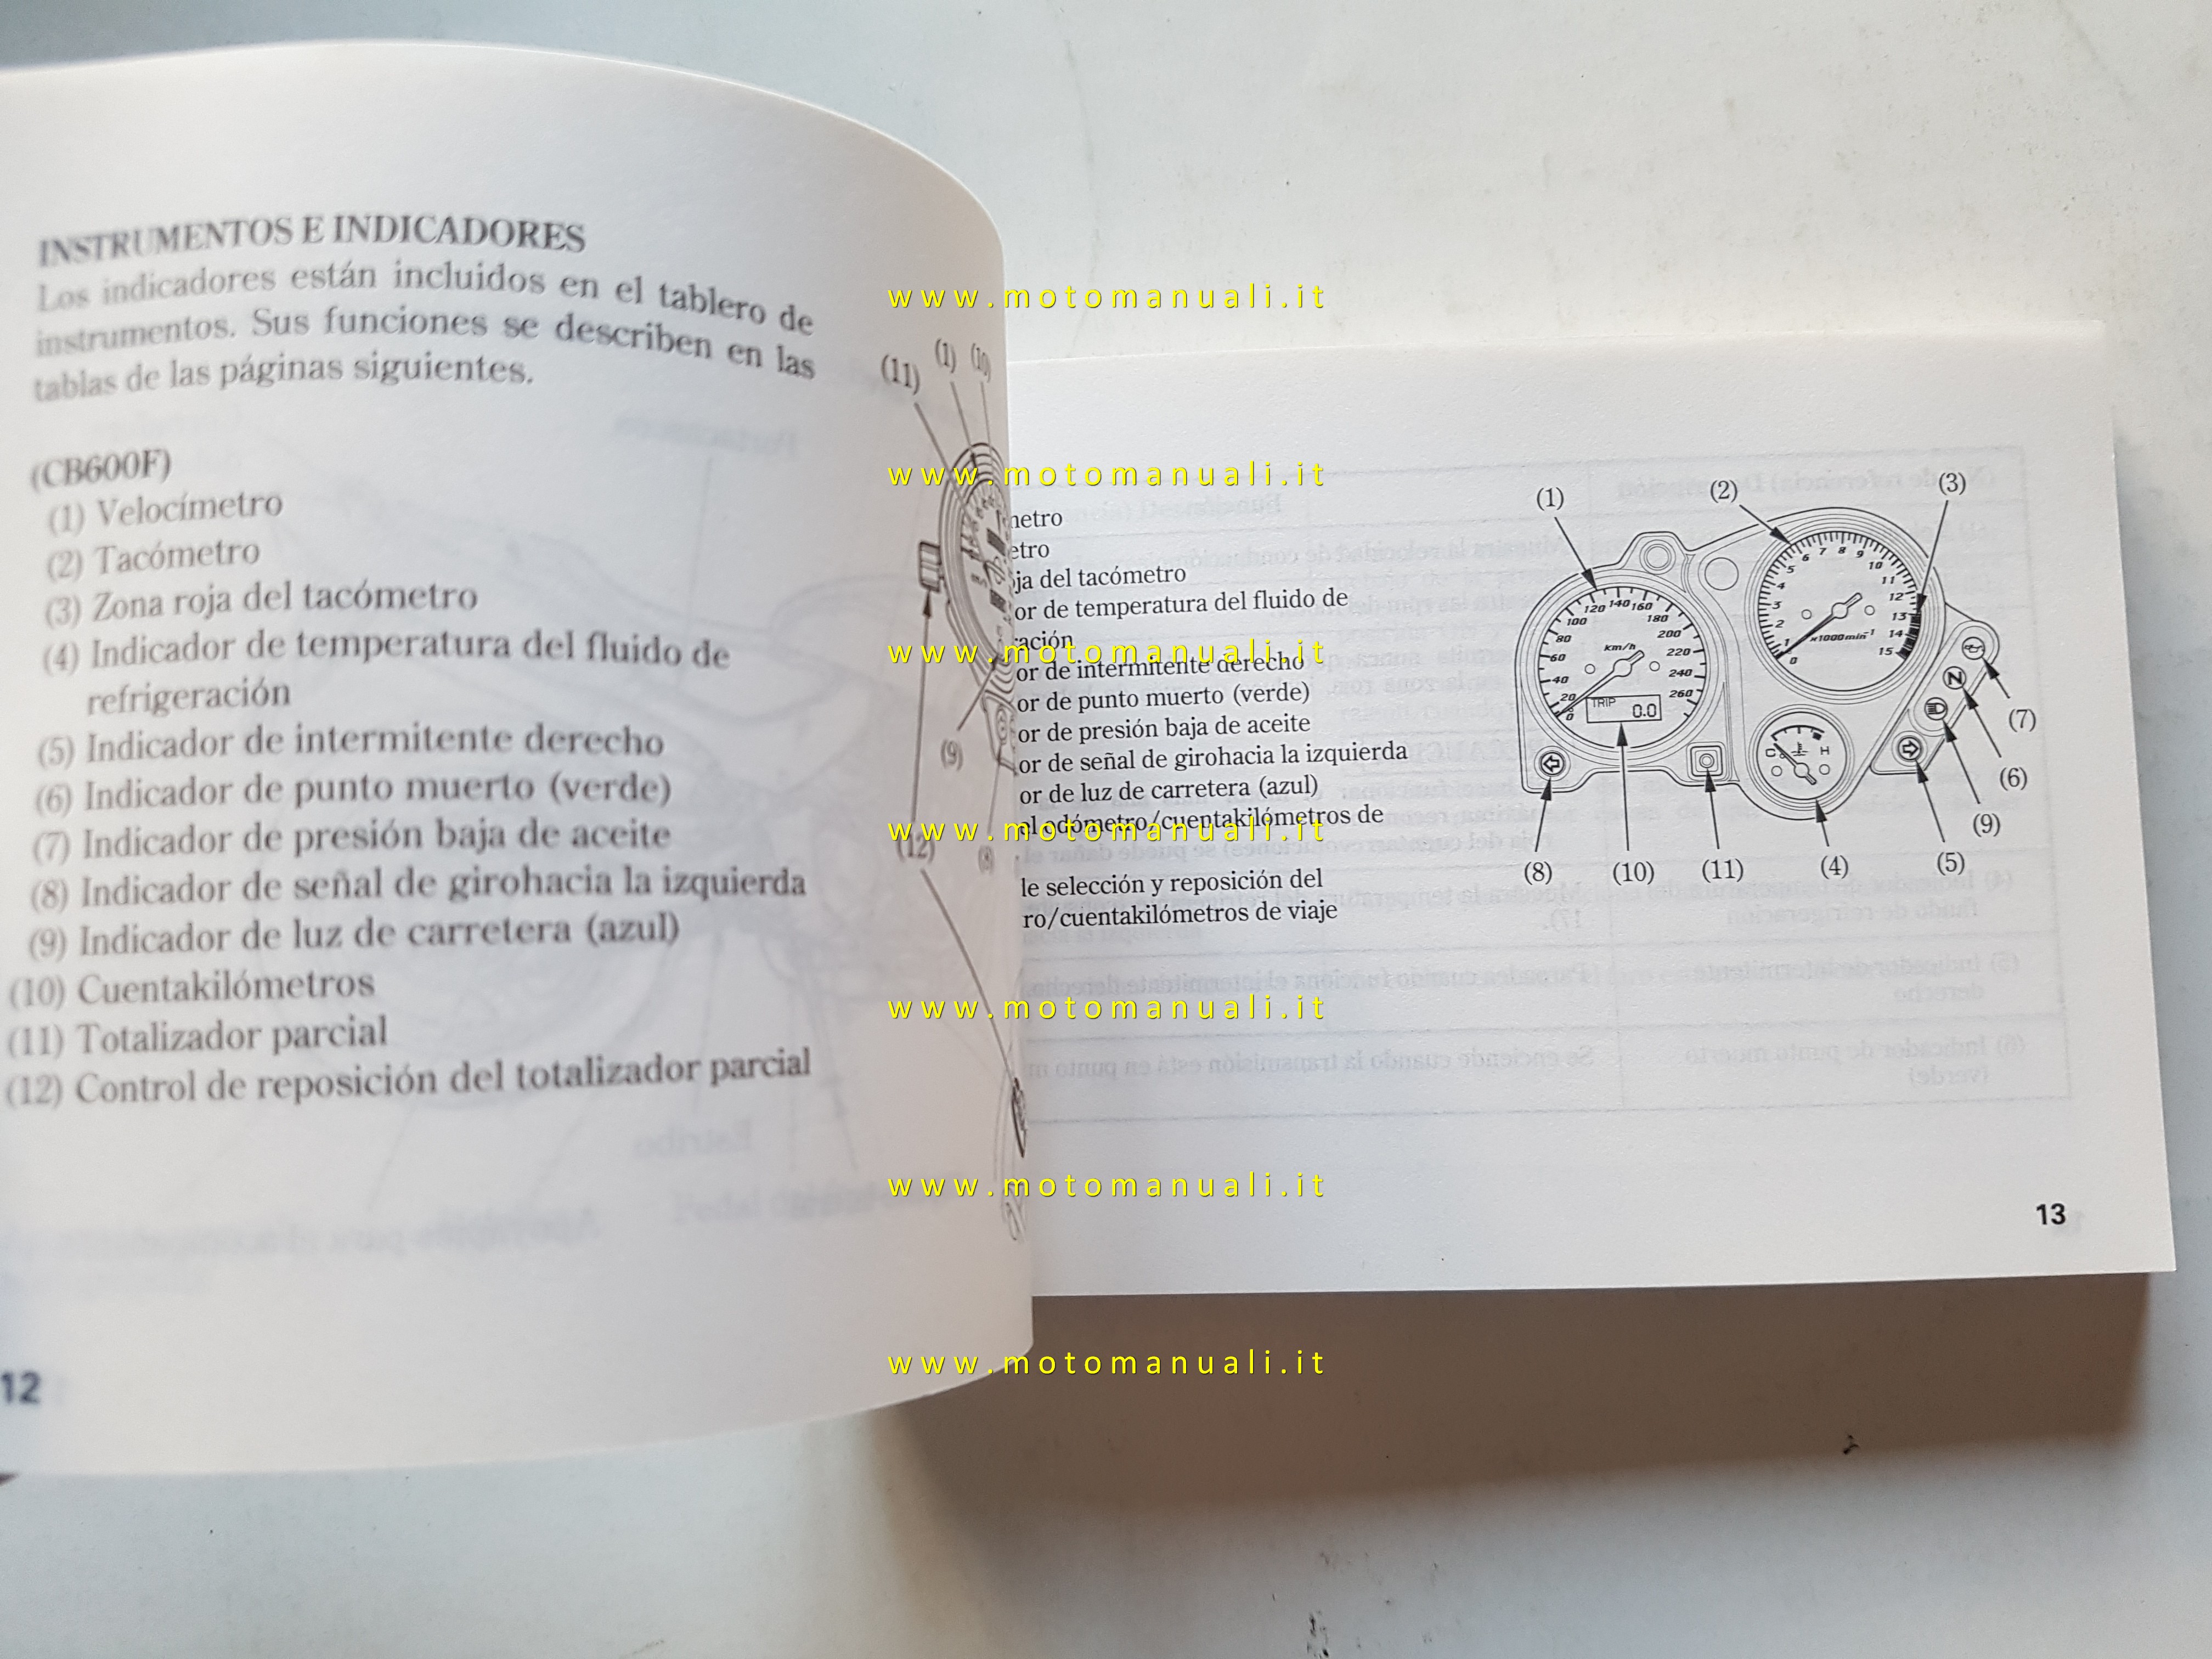 INSTRUMENTOS E INDICADORES
Los indicadores están incluidos en el tablero de
instrumentos. Sus funciones se describen en las
tablas de las páginas siguientes.
(CB600F)
(1) Velocímetro
(2) Tacómetro
(3) Zona roja del tacómetro
(4) Indicador de temperatura del fluido de
refrigeración
(5) Indicador de intermitente derecho
(6) Indicador de punto muerto (verde)
(7) Indicador de presión baja de aceite
(8) Indicador de señal de girohacia la izquierda
(9) Indicador de luz de carretera (azul)
(10) Cuentakilómetros
(11) Totalizador parcial
(12) Control de reposición del totalizador parcial
12
(11) (1) (10)
(9)
(12) (8)
www.motomanuali.it
www.motomanuali.it
www.motomanuali.it
www.motomanuali.it
www.motomanuali.it
www.motomanuali.it
www.motomanuali.it
metro
etro
ja del tacómetro
or de temperatura del fluido de
ración
or de intermitente derecho
or de punto muerto (verde)
or de presión baja de aceite
or de señal de girohacia la izquierda
or de luz de carretera (azul)
el odómetro/cuentakilómetros de
le selección y reposición del
ro/cuentakilómetros de viaje
(1) (2) (3)
0 20 40 60 80 100 120 140 160 180 200 220 240 260
km/h
TRIP
0.0
0 1 2 3 4 5 6 7 8 9 10 11 12 13 14 15
x1000min-1
C H
N
(7)
(6)
(9)
(8) (10) (11) (4) (5)
13